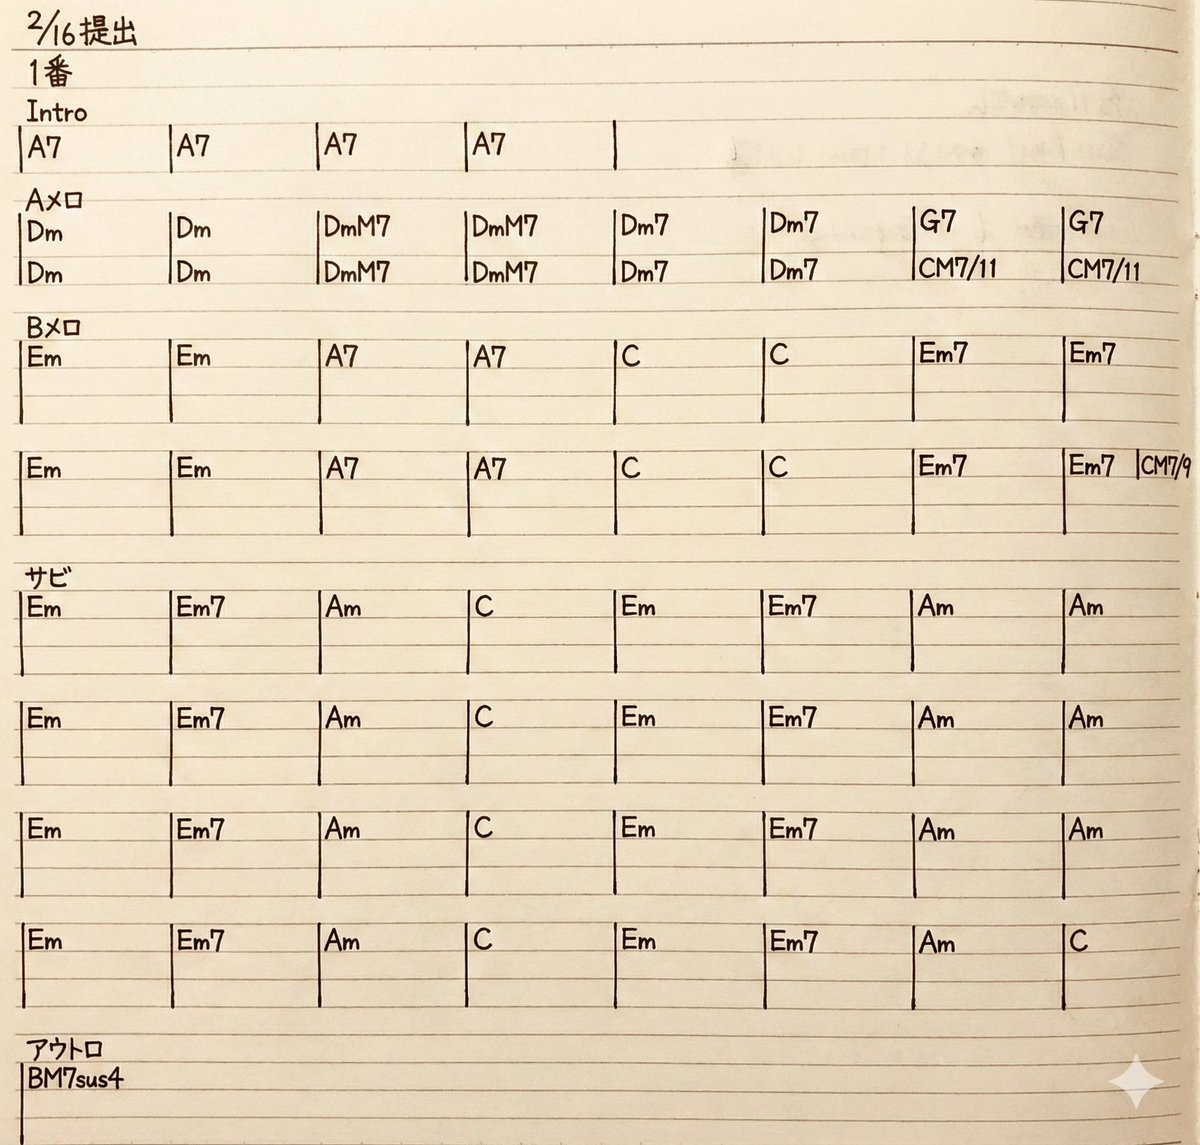 2/16提出
1番
Intro
|A7 |A7 |A7 |A7 |
Aメロ
|Dm |Dm |DmM7 |DmM7 |Dm7 |Dm7 |G7 |G7
|Dm |Dm |DmM7 |DmM7 |Dm7 |Dm7 |CM7/11 |CM7/11
Bメロ
|Em |Em |A7 |A7 |C |C |Em7 |Em7
|Em |Em |A7 |A7 |C |C |Em7 |Em7 |CM7/9
サビ
|Em |Em7 |Am |C |Em |Em7 |Am |Am
|Em |Em7 |Am |C |Em |Em7 |Am |Am
|Em |Em7 |Am |C |Em |Em7 |Am |Am
|Em |Em7 |Am |C |Em |Em7 |Am |C
アウトロ
|BM7sus4